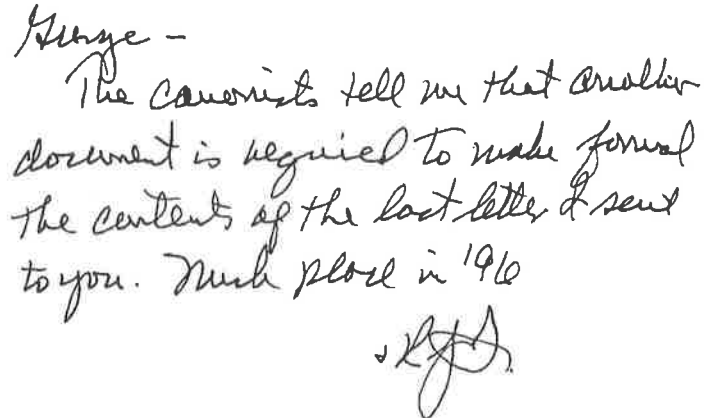 George –
The canonists tell me that another
document is required to make formal
the contents of the last letter I sent
to you. Much peace in '96
+RJS.